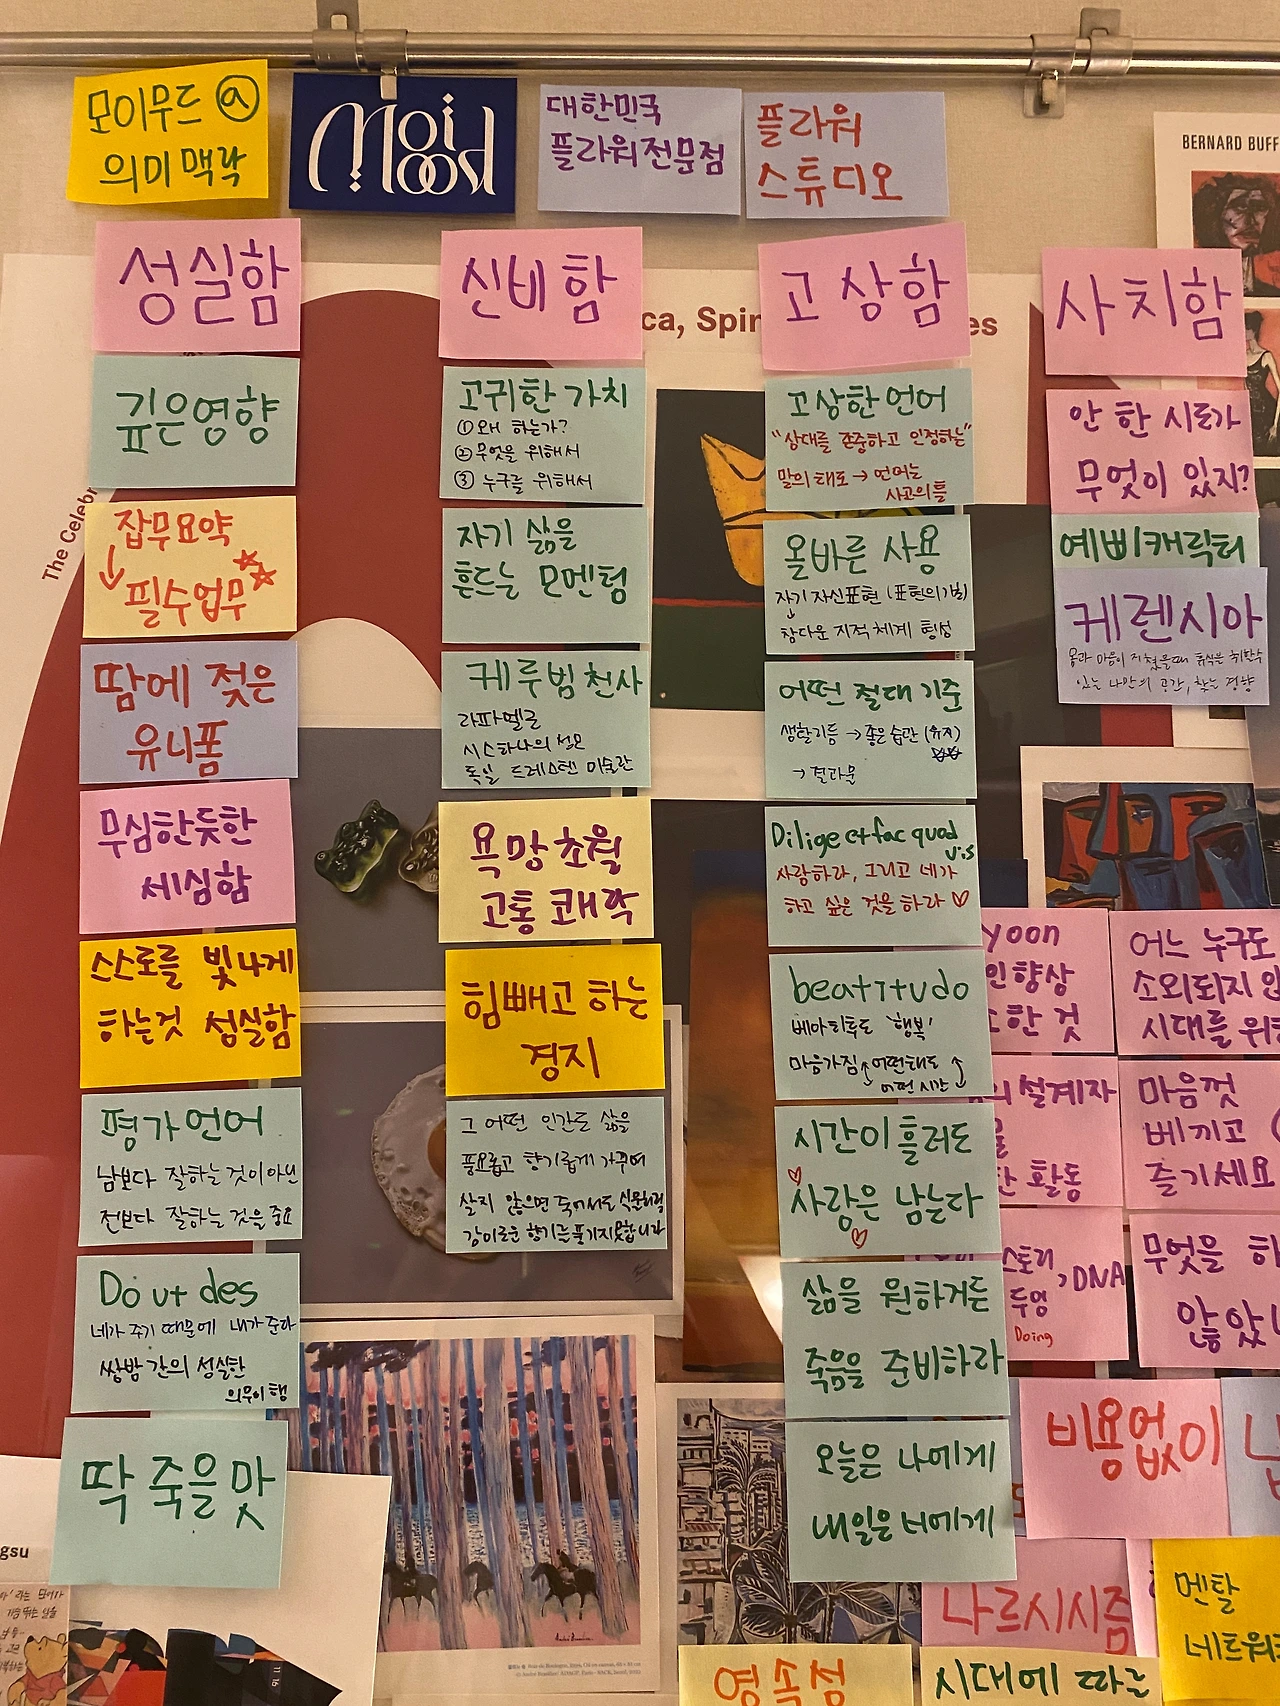 모이무드 ⓐ
의미 맥락
Moi
Mood
대한민국
플라워전문점
플라워
스튜디오
BERNARD BUFF
성실함
깊은영향
잡무요약
↓필수업무
땀에 젖은
유니폼
무심한듯한
세심함
스스로를 빛나게
하는것 성실함
평가언어
남보다 잘하는 것이 아닌
전보다 잘하는 것을 중요
Do ut des
네가 주기 때문에 내가 준다
쌍방 간의 성실한
의무이행
딱 죽을 맛
신비함
고귀한 가치
① 왜 하는가?
② 무엇을 위해서
③ 누구를 위해서
자기 삶을
흔드는 모멘텀
케루빔 천사
라파엘로
시스티나의 성모
독일 드레스덴 미술관
욕망 초월
고통 쾌락
힘빼고 하는
경지
그 어떤 인간도 삶을
풍요롭고 향기롭게 가꾸며
살지 않으면 죽어서도 식물처럼
강이로운 향기를 풍기지 못합니다
고상함
고상한 언어
"상대를 존중하고 인정하는"
말의 태도 → 언어는
사고의 틀
올바른 사용
자기 자신표현 (표현의 기회)
↓
참다운 지적 체계 형성
어떤 절대 기준
생활기등 → 좋은 습관 (유지)
→ 결과문
Dilige et fac quod
vis
사랑하라, 그리고 네가
하고 싶은 것을 하라 ♡
beatitudo
베아티투도 '행복'
마음가짐 어떤태도
어떤 시간
시간이 흘러도
사랑은 남는다
삶을 원하거든
죽음을 준비하라
오늘은 나에게
내일은 너에게
사치함
안 한 시도가
무엇이 있지?
예삐캐릭터
케렌시아
몸과 마음이 지쳤을때 휴식을 취할수
있는 나만의 공간, 찾는 경향
yoon
인향상
한 것
어느 누구도
소외되지 않
시대를 위해
설계자
활동
마음껏
베끼고
즐기세요
스토리
두영
,DNA
Doing
무엇을 하
않았니
비용없이
나르시시즘
멘탈
네트워크
영속성
시대에 따른
The Celebr
ca, Spin
es
gsu